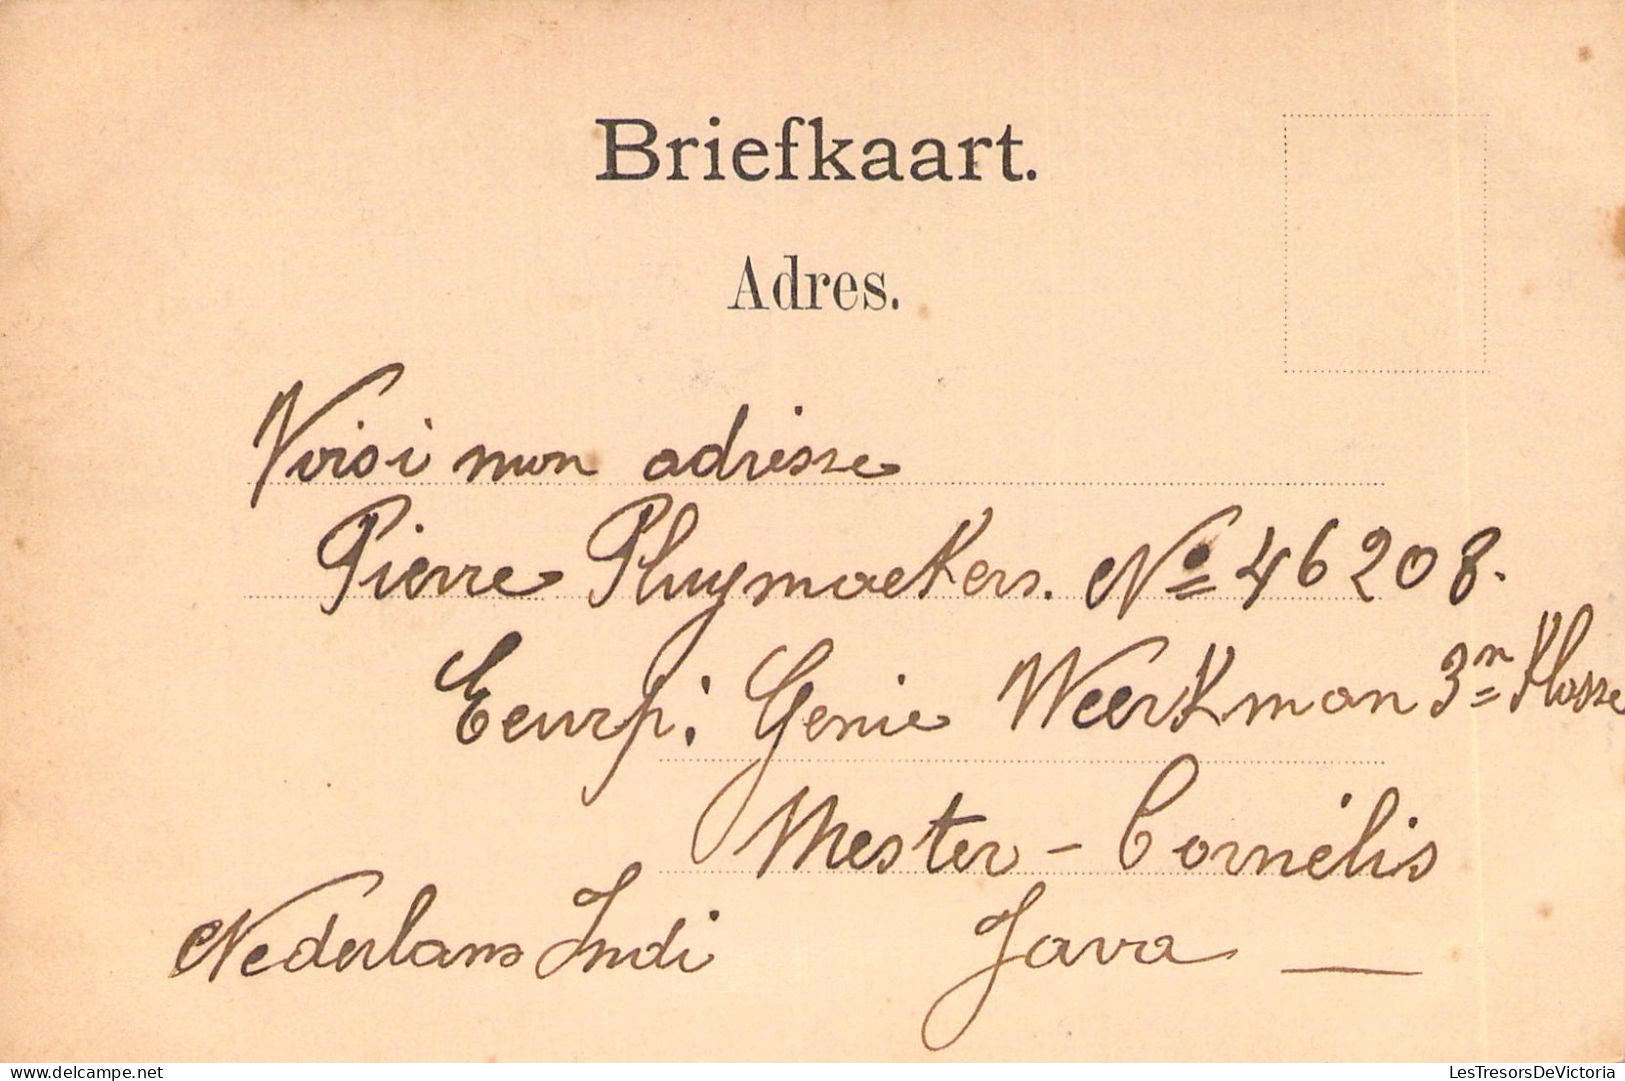 Briefkaart.
Adres.
Voisi mon adresse
Pierre Pluymaekers. No 46208.
Eeurp: Genie Weerkman 3n Klasse
Mester - Cornélis
Nederlans Indi Java
delcampe.net
LesTresorsDeVictoria